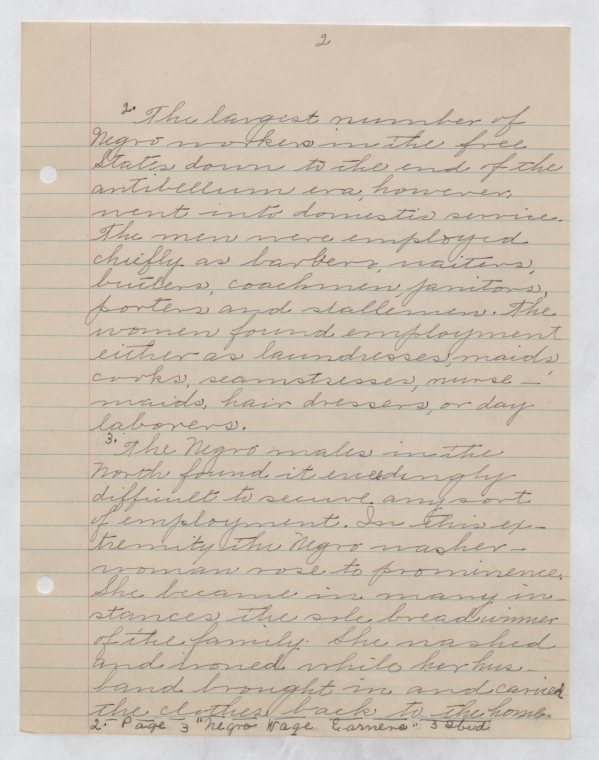 2
2. The largest number of
Negro workers in the free
States down to the end of the
antibellum era, however,
went into domestic service.
The men were employed
chiefly as barbers, waiters,
butlers, coachmen, janitors,
porters and stallemen. The
women found employment
either as laundresses, maids,
cooks, seamstresses, nurse-
maids, hair dressers, or day
laborers.
3. The Negro males in the
North found it exceedingly
difficult to secure any sort
of employment. In this ex-
tremity the Negro washer-
woman rose to prominence.
She became in many in-
stances the sole bread winner
of the family. She washed
and ironed while her hus-
band brought in and carried
the clothes back to the home.
2- Page 3 "Negro Wage Earners" 3 ibid